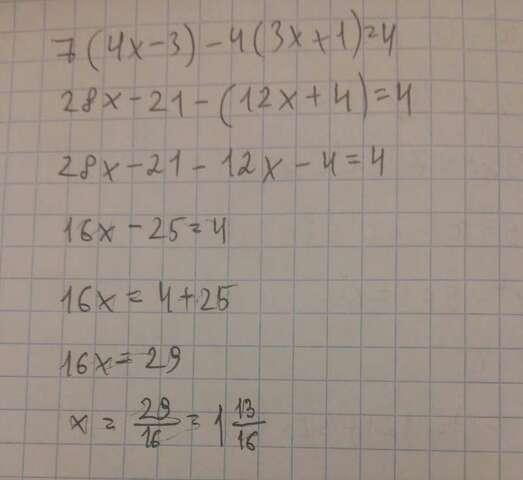 7(4x-3)-4(3x+1)=4
28x-21-(12x+4)=4
28x-21-12x-4=4
16x-25=4
16x=4+25
16x=29
x=29/16=1 13/16